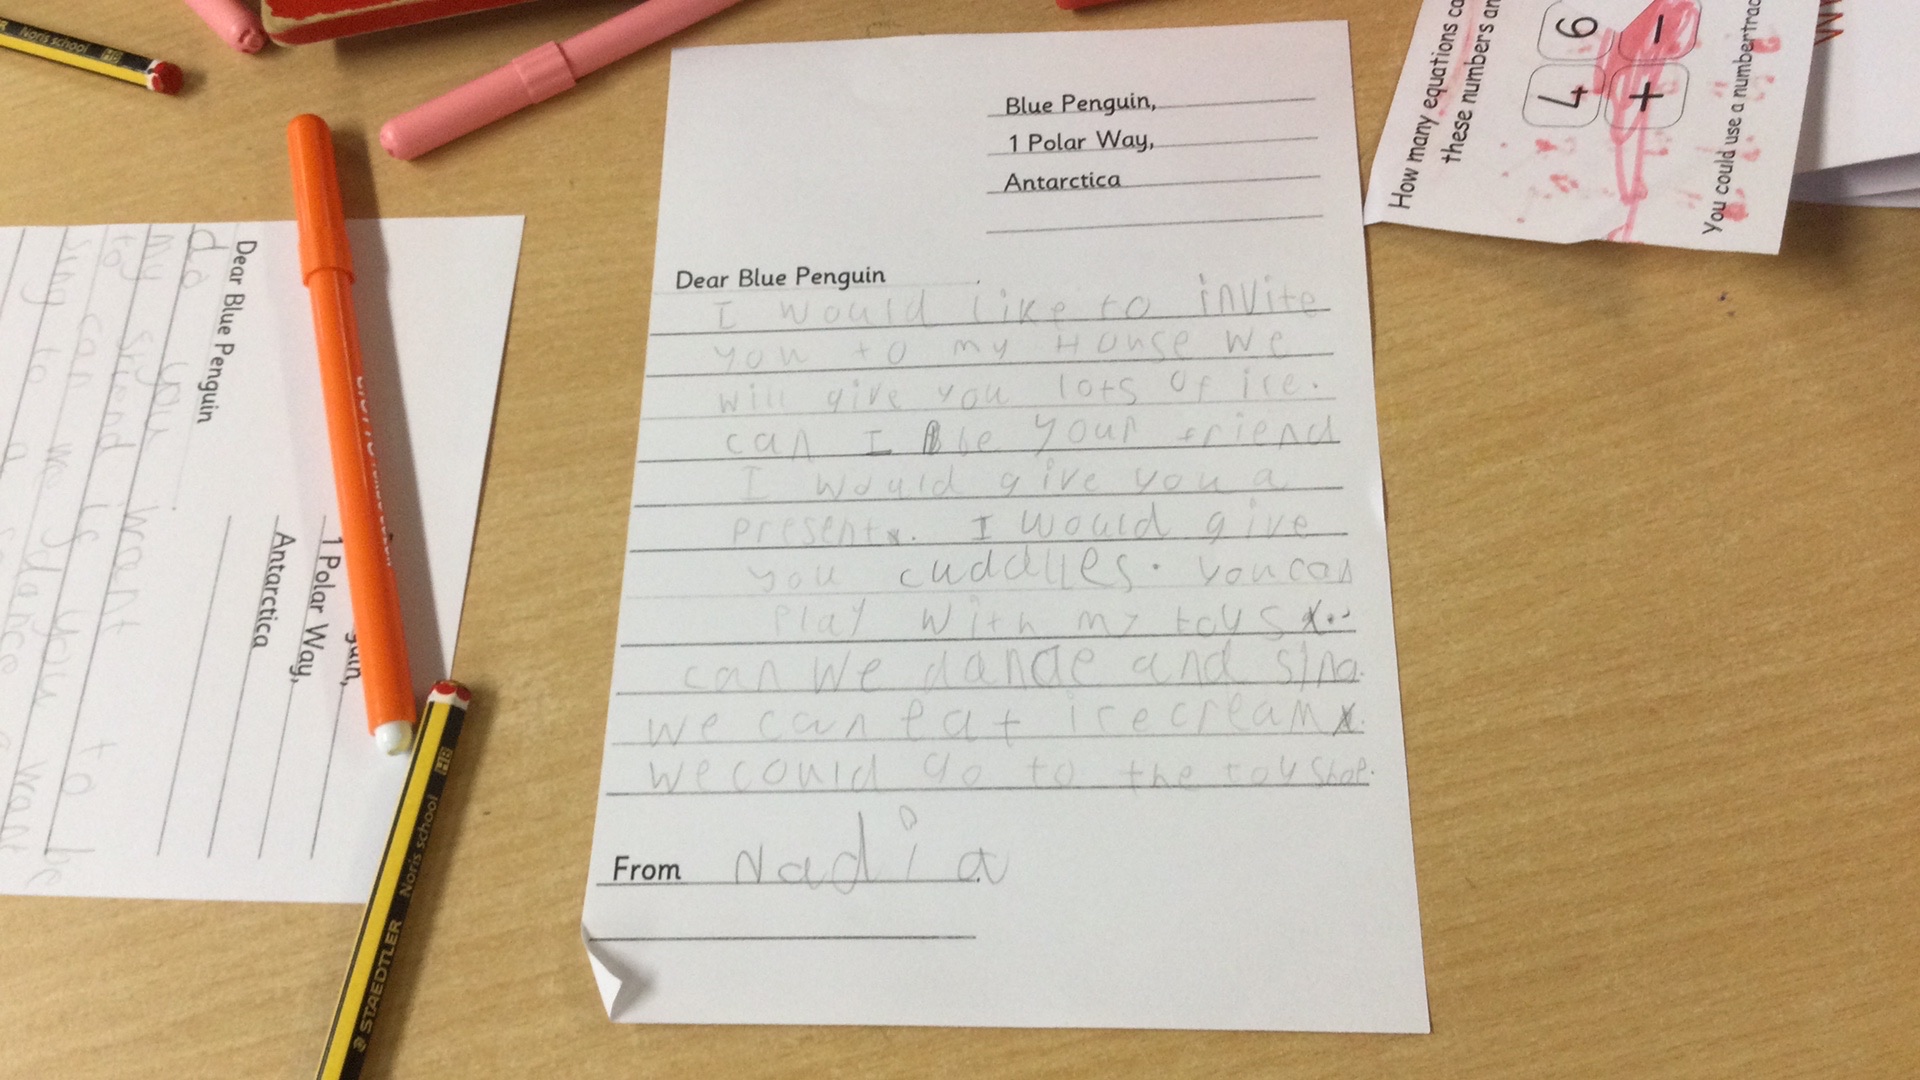 Blue Penguin,
1 Polar Way,
Antarctica
Dear Blue Penguin
I would like to invite
you to my House we
will give you lots of ice.
can I be your friend
I would give you a
present. I would give
you cuddlles. you can
play with my toys.
can we dance and sing.
we can eat icecream.
we could go to the toy shop.
From Nadia
Dear Blue Penguin
do you want
my
to
sing to a
can me
if you
to be
want
1 Polar Way,
Antarctica
How many equations
these numbers
6 -
4 +
You could use a
Noris school
HB
STAEDTLER Noris school HB